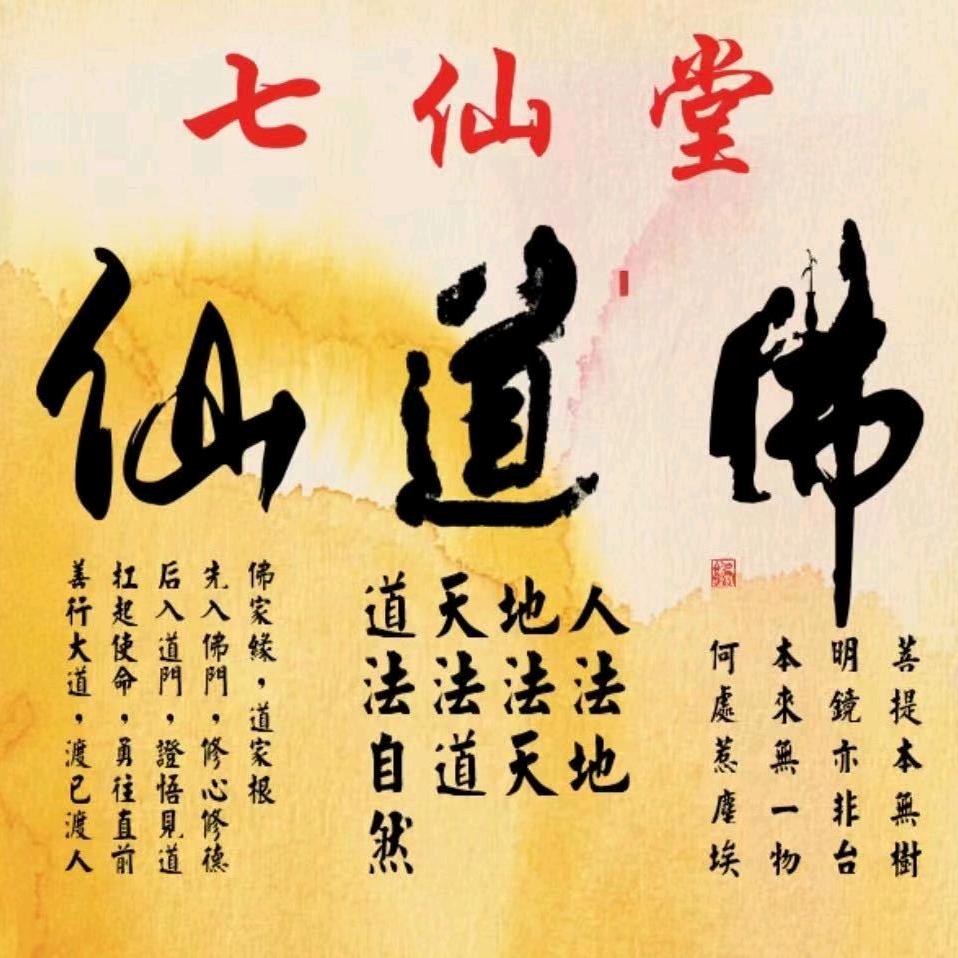 七仙堂
佛
菩提本無樹
明鏡亦非台
本來無一物
何處惹塵埃
道
人法地
地法天
天法道
道法自然
仙
佛家緣，道家根
先入佛門，修心修德
后入道門，證悟見道
扛起使命，勇往直前
善行大道，渡已渡人